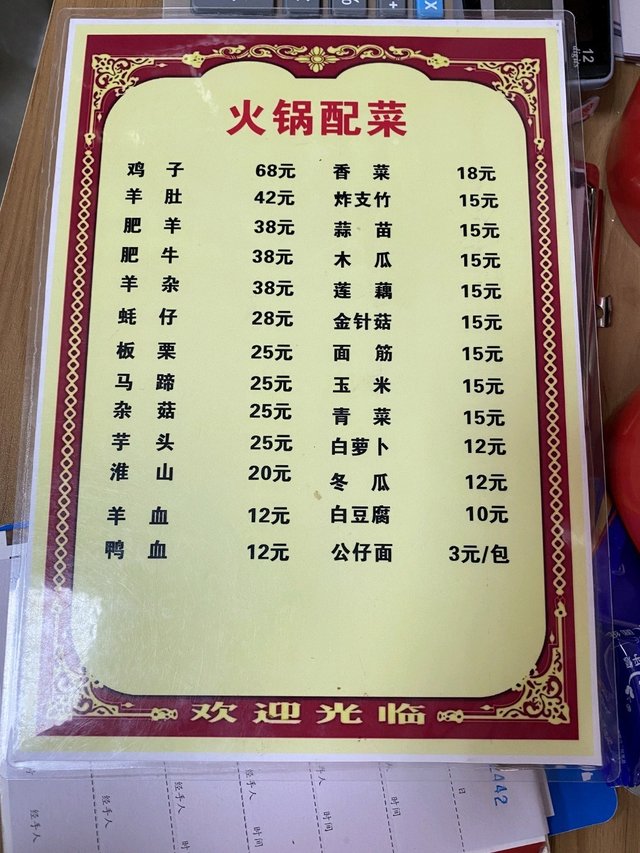 火锅配菜
鸡子 68元
羊肚 42元
肥羊 38元
肥牛 38元
羊杂 38元
蚝仔 28元
板栗 25元
马蹄 25元
杂菇 25元
芋头 25元
淮山 20元
羊血 12元
鸭血 12元
香菜 18元
炸支竹 15元
蒜苗 15元
木瓜 15元
莲藕 15元
金针菇 15元
面筋 15元
玉米 15元
青菜 15元
白萝卜 12元
冬瓜 12元
白豆腐 10元
公仔面 3元/包
欢迎光临
12
digits
%
÷
X
442
日
经手人 时间
经手人 时间
经手人 时间
经手人 时间
经手人 时间